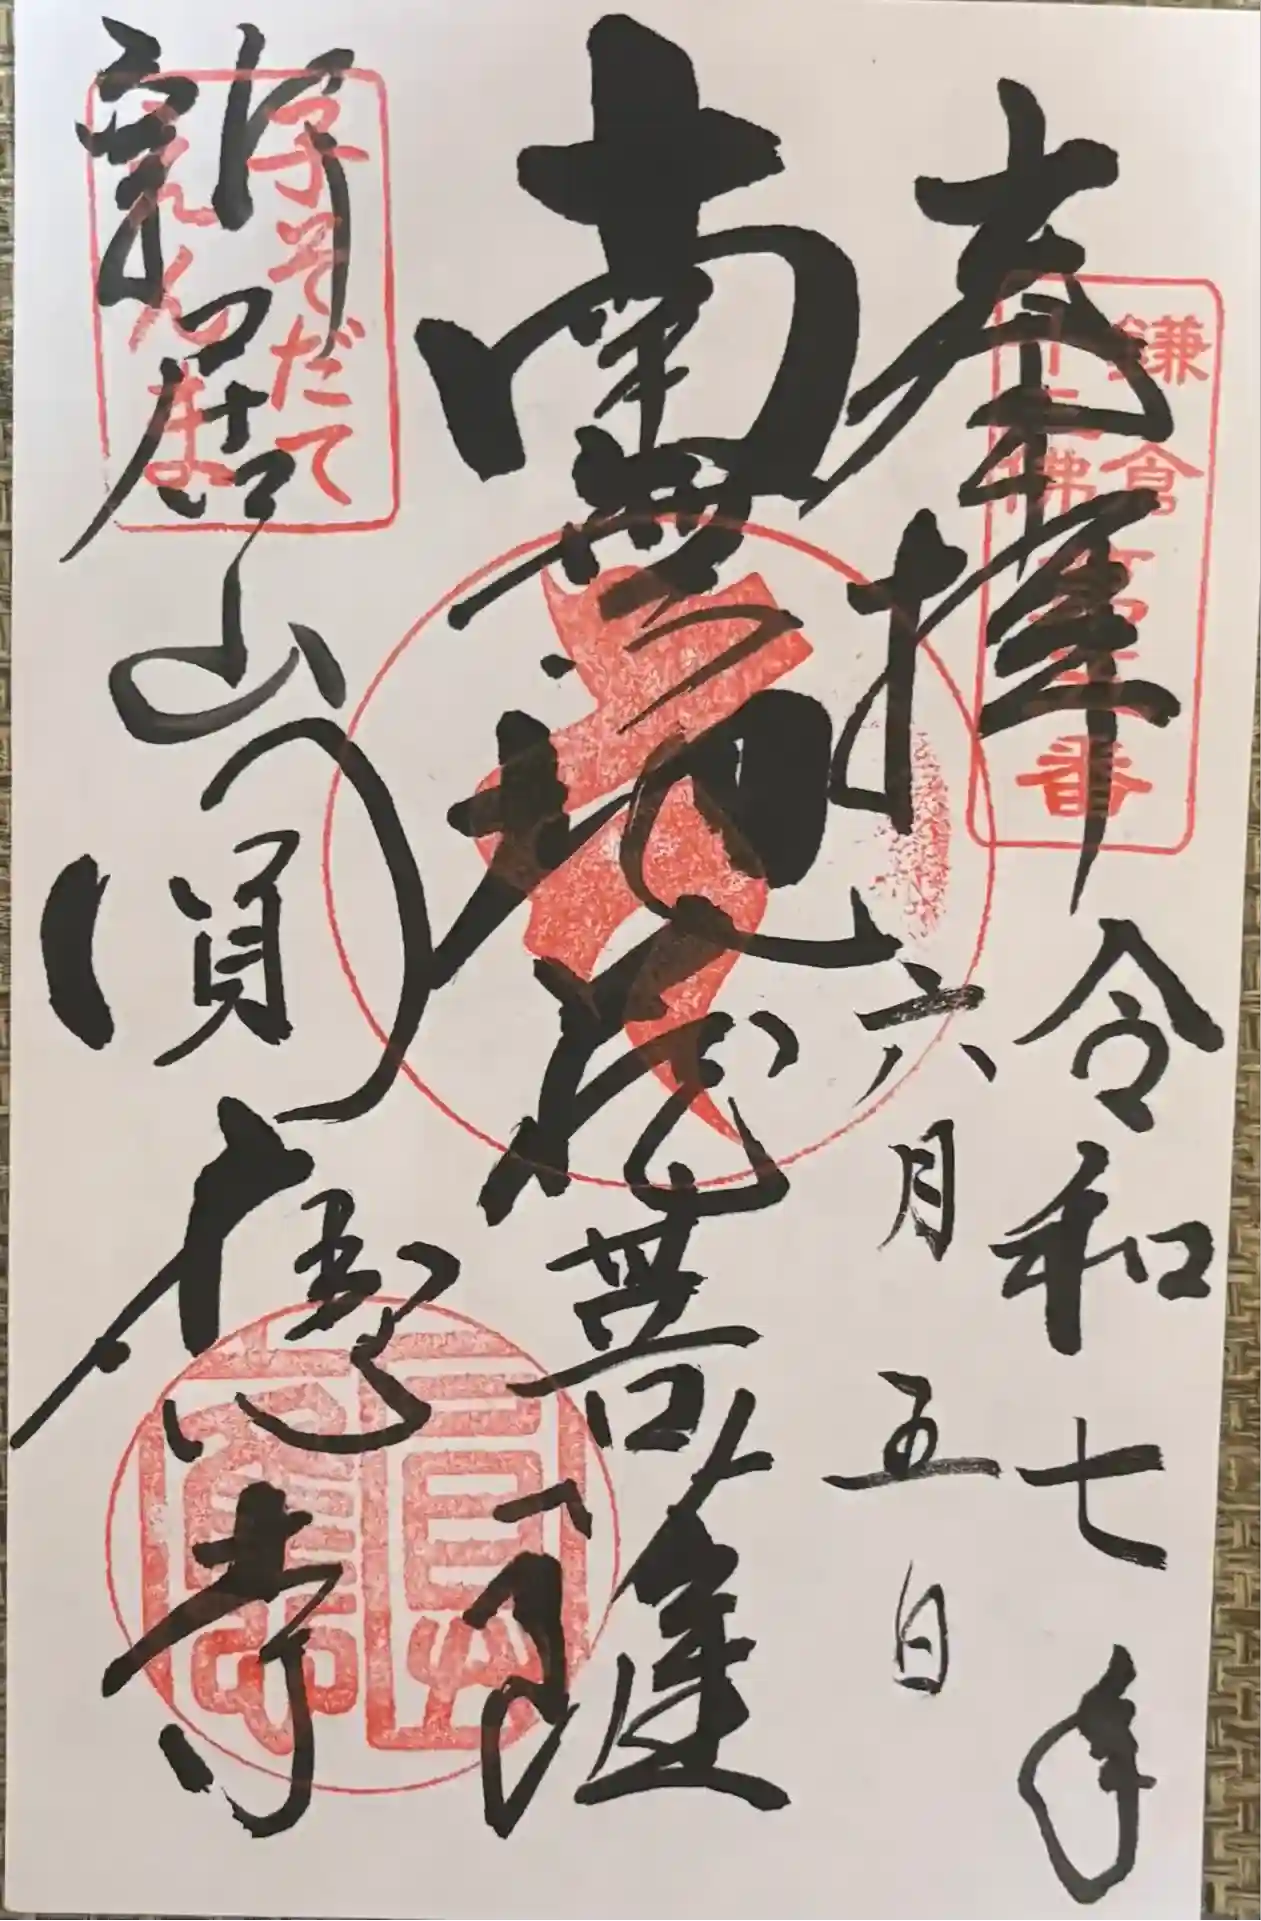 奉拝
令和七年
六月五日
鎌倉
十三佛
第五番
南無地蔵菩薩
子そだて
えんま
新居山圓應寺